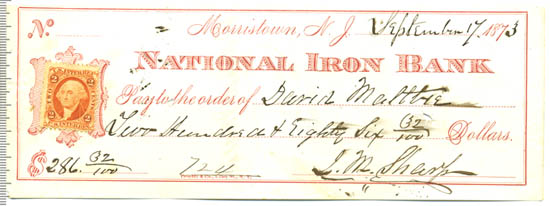 No. = Morristown, N. J. September 17, 1873
NATIONAL IRON BANK
Pay to the order of David Maltbie
Two Hundred & Eighty Six 32/100 Dollars.
$286.32/100 L. M. Sharp